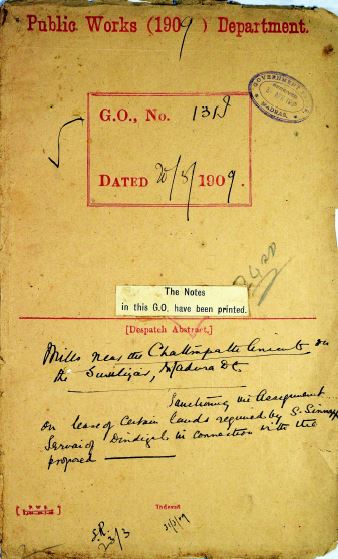 Public Works (1909) Department.
GOVERNMENT
MADRAS
G.O., No. 131
DATED 20/3/1909.
The Notes
in this G.O. have been printed.
[Despatch Abstract.]
Mills near the Anicut on
the Madura Dt.
Sanctioning the Assignment
on lease of certain lands required by S. Sinnappa
Servai of Dindigul in connection with the
proposed
Indexed
S.R.
23/3
31/3/09